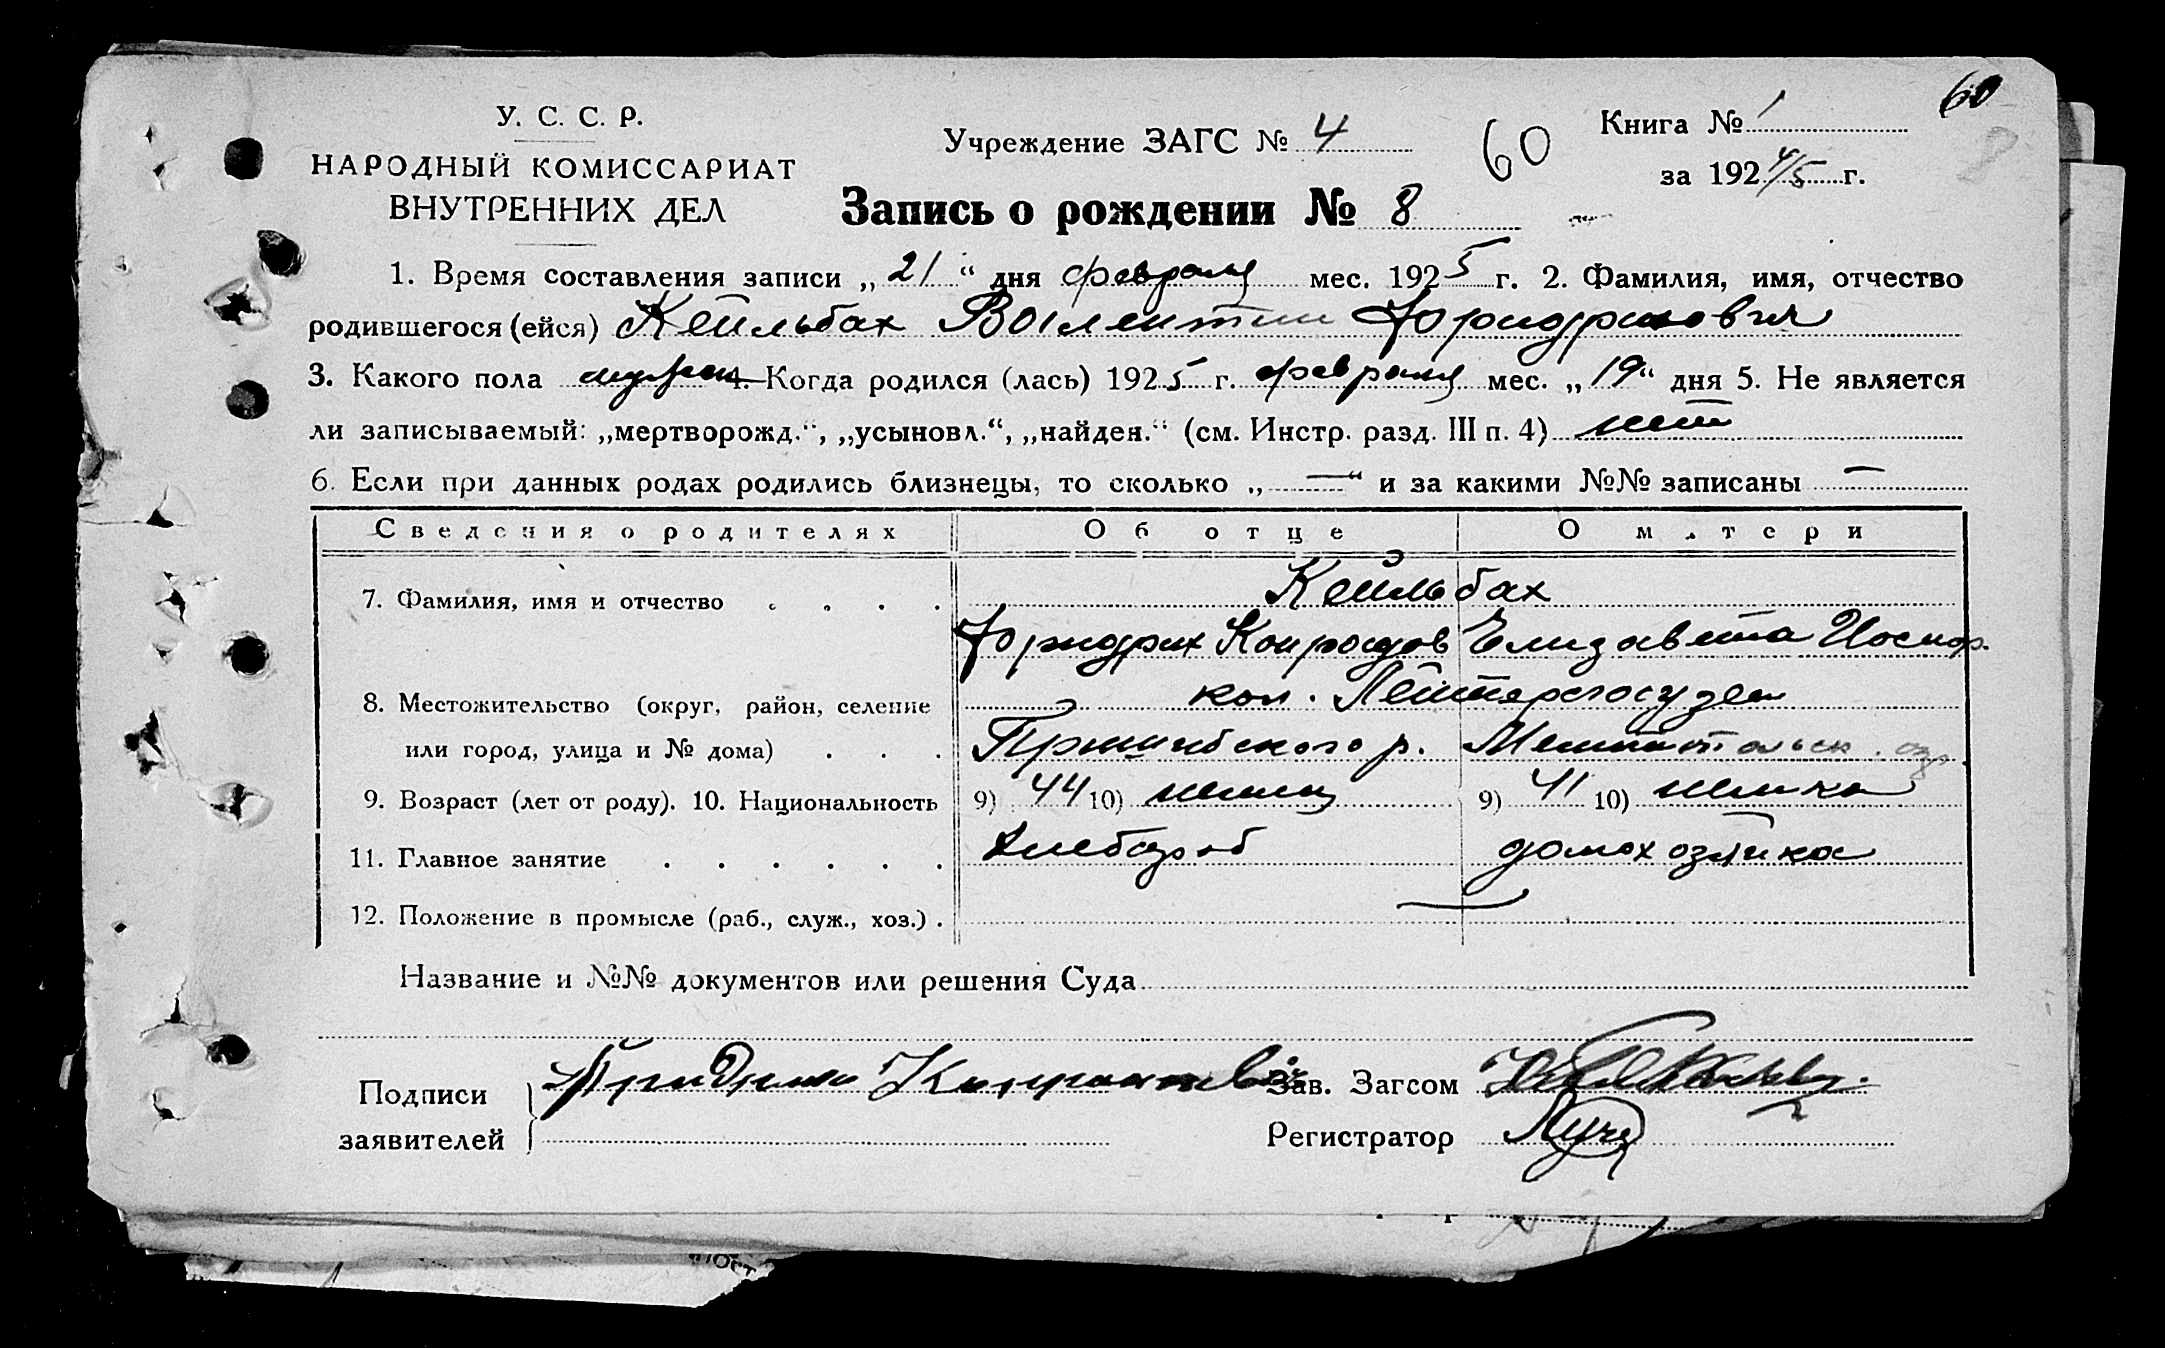 60
У. С. С. Р.
НАРОДНЫЙ КОМИССАРИАТ
ВНУТРЕННИХ ДЕЛ
Учреждение ЗАГС № 4
60
Книга № 1
за 1924/5 г.
Запись о рождении № 8
1. Время составления записи „21“ дня февраля мес. 1925 г. 2. Фамилия, имя, отчество
родившегося (ейся) Кейльбах Валентин Фридрихович
3. Какого пола мужск 4. Когда родился (лась) 1925 г. февраля мес. „19“ дня 5. Не является
ли записываемый: „мертворожд.“, „усыновл.“, „найден.“ (см. Инстр. разд. III п. 4) нет
6. Если при данных родах родились близнецы, то сколько „—“ и за какими №№ записаны —
Сведения о родителях Об отце О матери
7. Фамилия, имя и отчество . . . . Кейльбах
Фридрих Конрадов Елизавета Иосиф.
8. Местожительство (округ, район, селение кол.
или город, улица и № дома) . . . Пришибского р. Мелитопольск. окр.
9. Возраст (лет от роду). 10. Национальность 9) 44 10) немец 9) 41 10) немка
11. Главное занятие . . . . . . Хлебороб домохозяйка
12. Положение в промысле (раб., служ., хоз.) . —
Название и №№ документов или решения Суда
Подписи
заявителей
Зав. Загсом
Регистратор